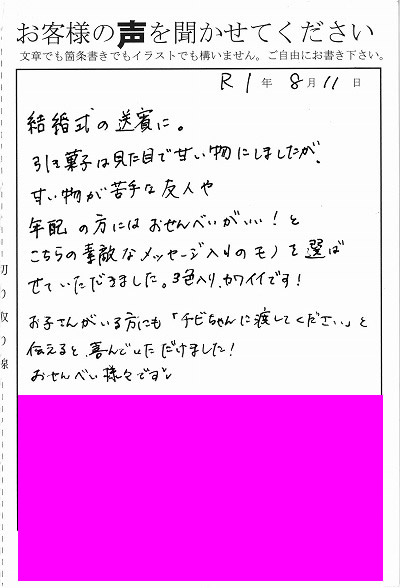 お客様の声を聞かせてください
文章でも箇条書きでもイラストでも構いません。ご自由にお書き下さい。
R1年 8月11日
結婚式の送賓に。
引き菓子は見た目で甘い物にしましたが、
甘い物が苦手な友人や
年配の方にはおせんべいがいい!と
こちらの素敵なメッセージ入りのモノを選ば
せていただきました。3色入り、カワイイです!
お子さんがいる方にも「チビちゃんに渡してください」と
伝えると、喜んでいただけました!
おせんべい様々です
切り取り線